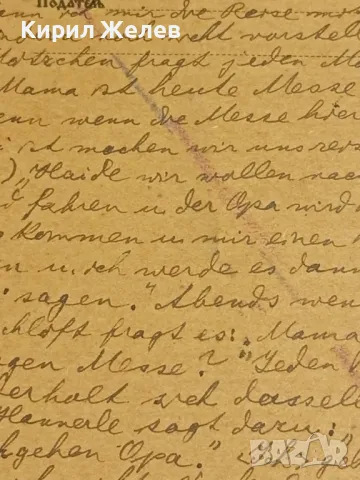 Податель
Кирил Желев
ich mir die Reise
nicht vorstell
fragt jeden Mo
Mama ist heute Messe
wenn die Messe hier
ist machen wir uns
) „Haide wir wollen nac
fahren u. der Opa wird
kommen u. mir einen
n u. ich werde es dann
sagen." Abends wen
schläft fragt es: „Mama
gen Messe?" Jeden
derholt sich dassel
Hannerle sagt daru: "
gehen Opa."
BAZAR